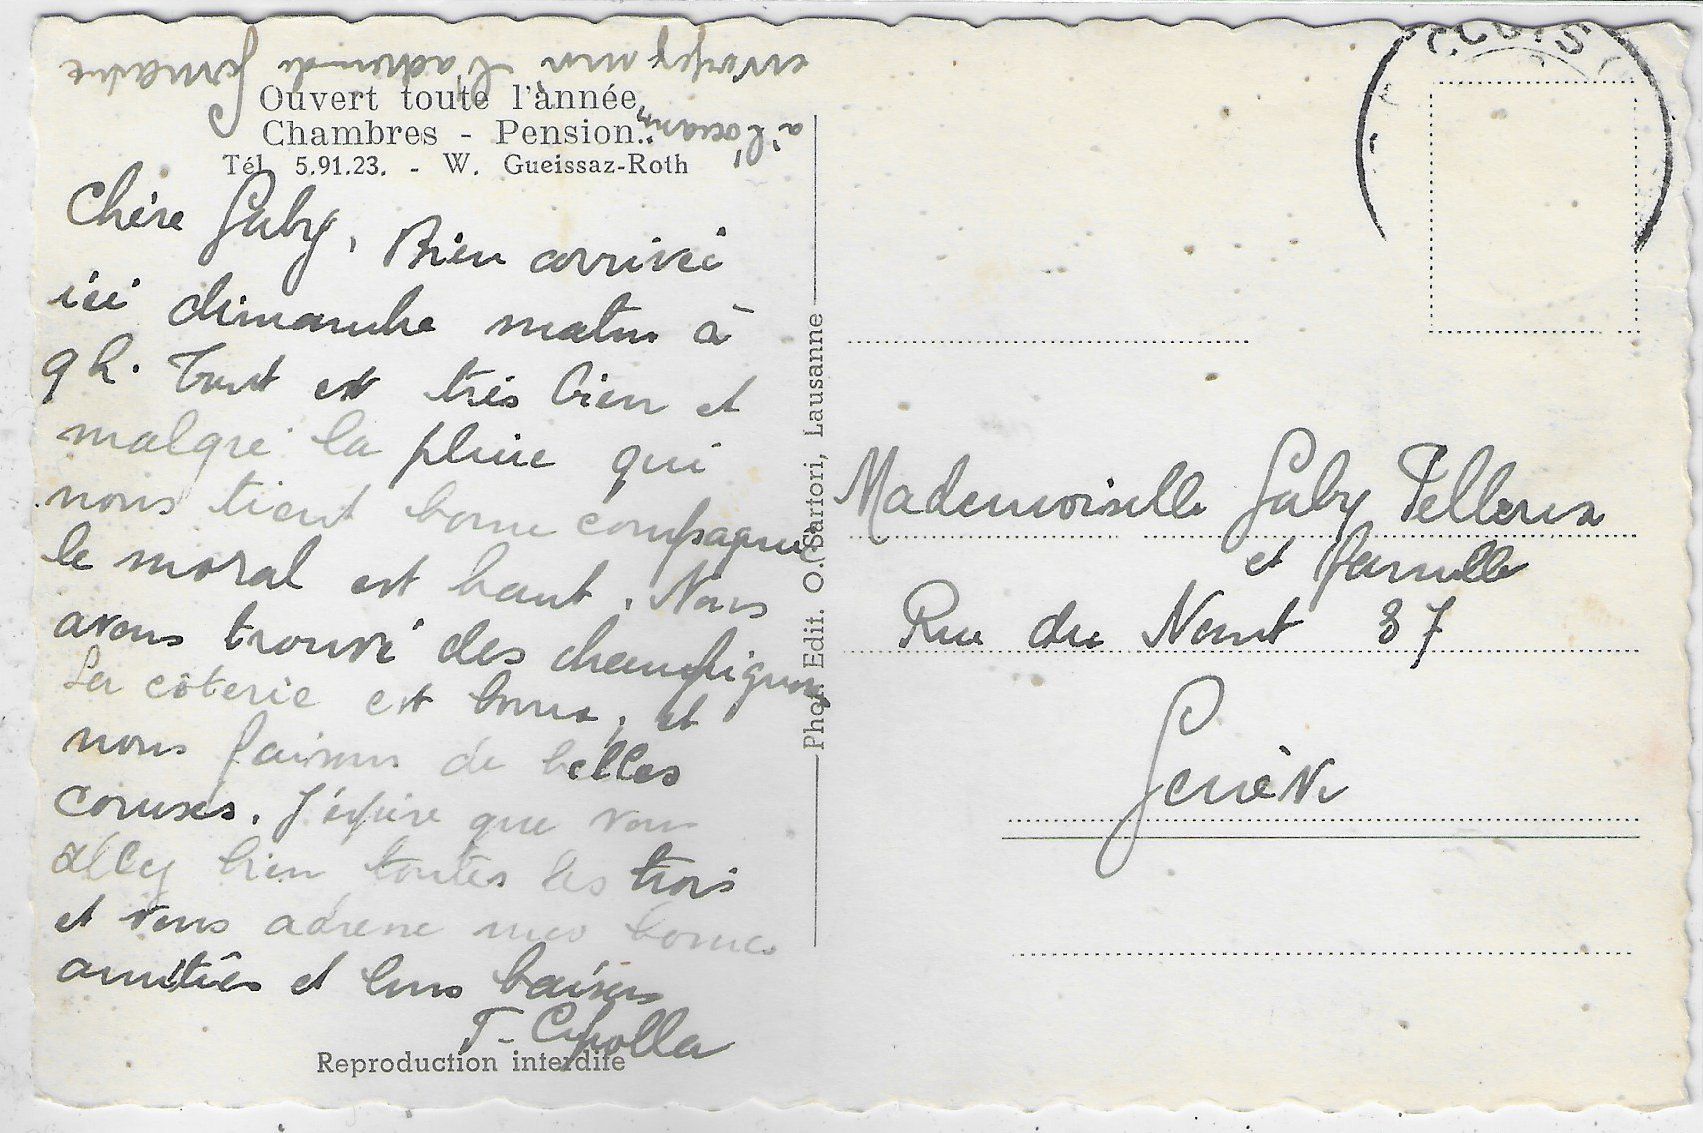 à l'occasion
envoyez moi l'adresse de
Ouvert toute l'année
Chambres - Pension
Tél. 5.91.23. - W. Gueissaz-Roth
Chère Gaby, Bien arrivée
ici dimanche matin à
9 h. Tout est très bien et
malgré la pluie qui
nous tient bonne compagnie
le moral est haut. Nous
avons trouvé des champignons
La côterie est bonne, et
nous faisons de belles
courses. J'espère que vous
allez bien toutes les trois
et vous adresse mes bonnes
amitiés et bons baisers
T. Cipolla
Reproduction interdite
Phot. Edit. O. Sartori, Lausanne
Mademoiselle Gaby
et famille
Rue du Nant 37
Genève